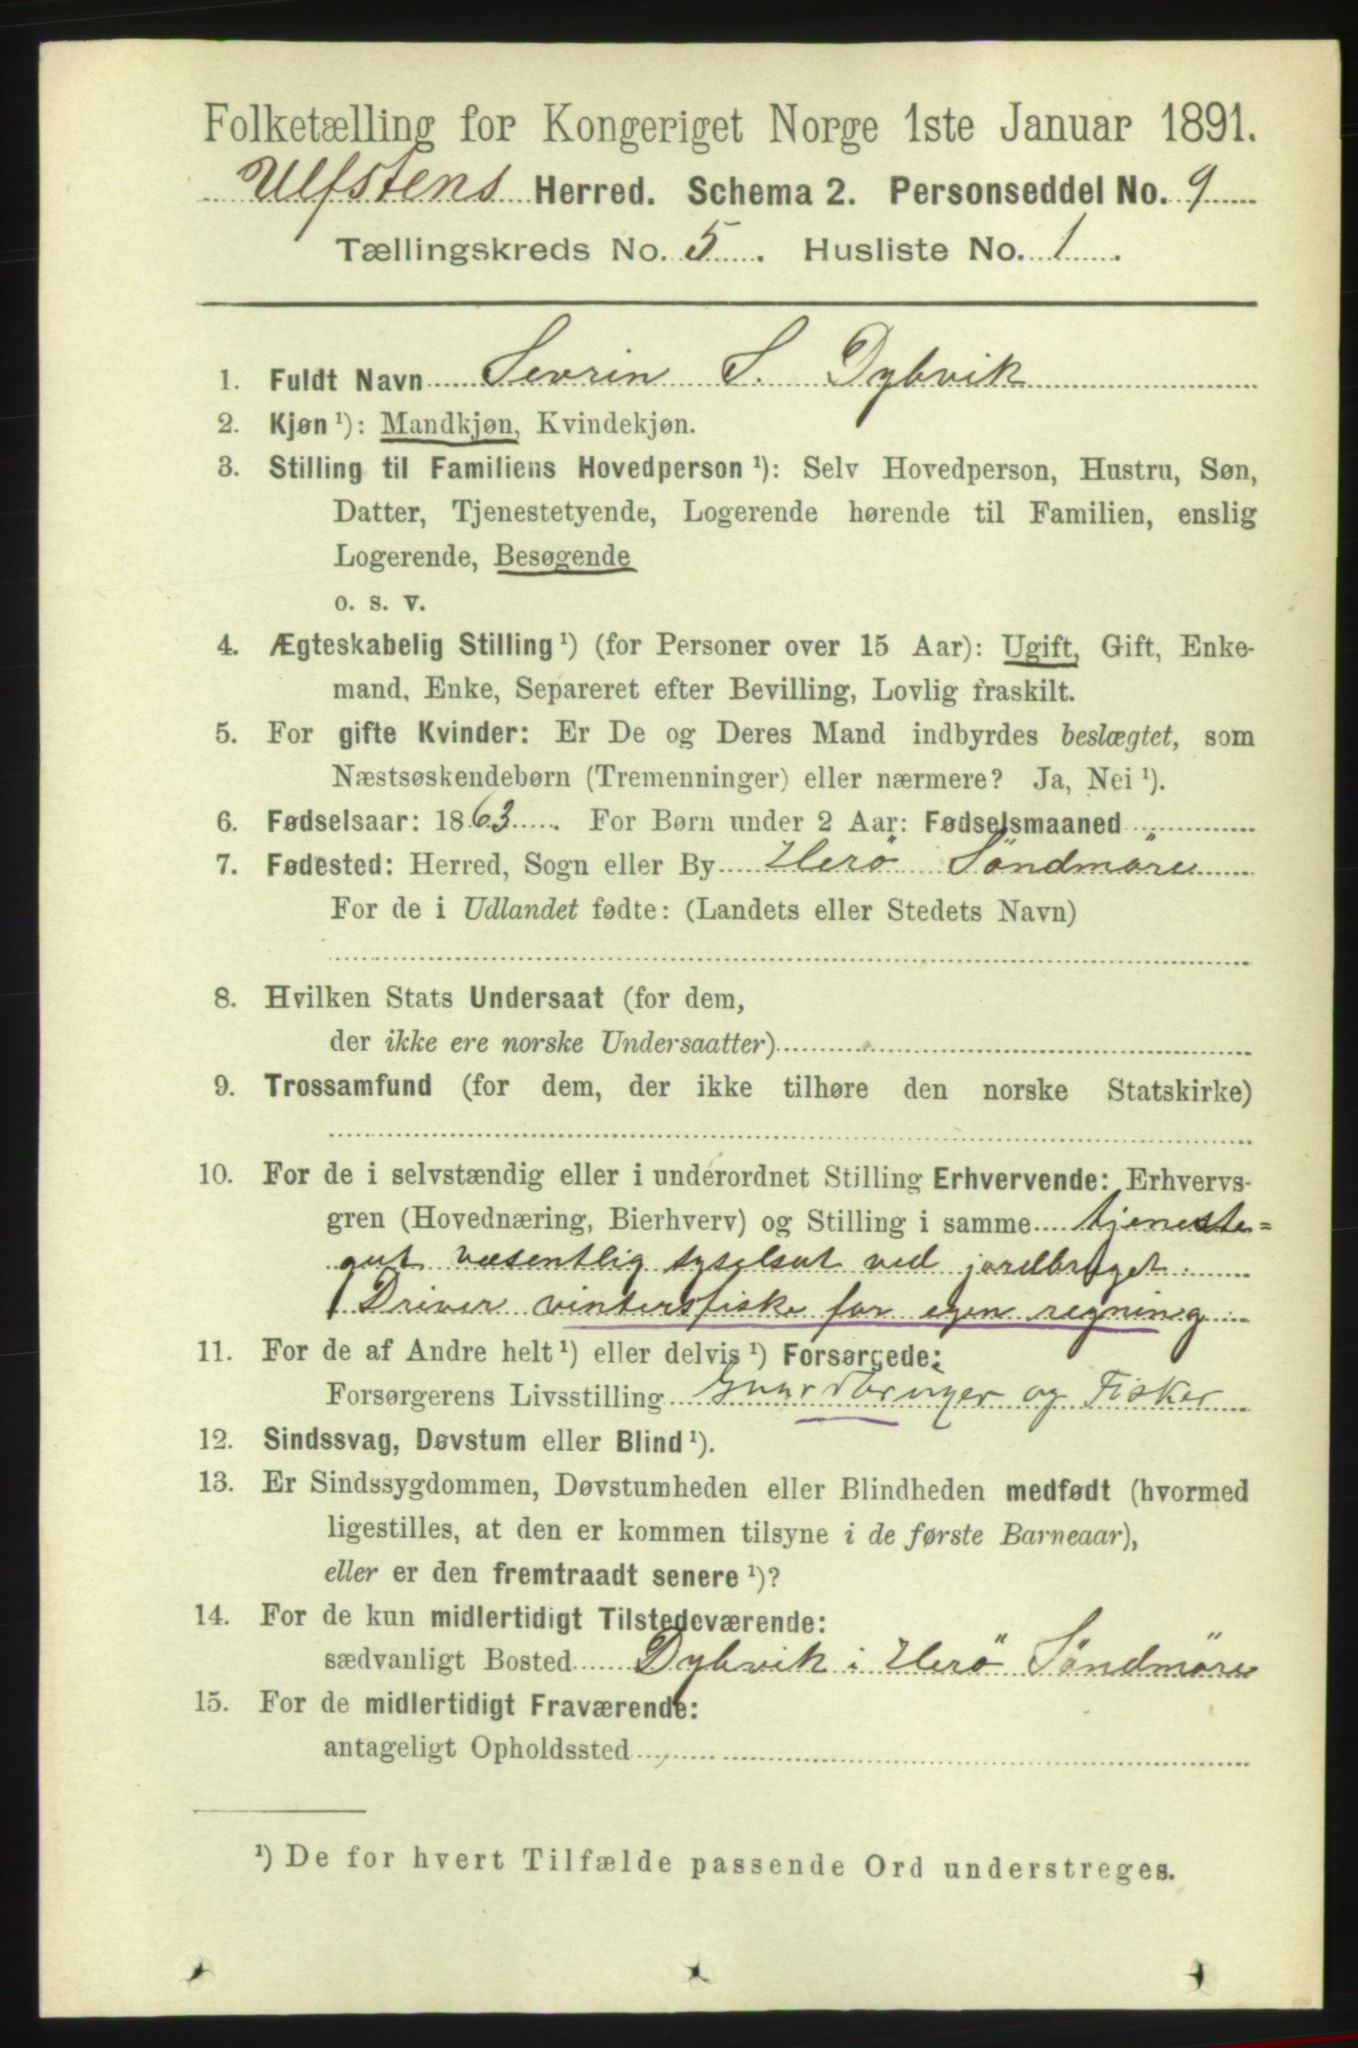 Folketælling for Kongeriget Norge 1ste Januar 1891.
Ulfstens Herred. Schema 2. Personseddel No. 9
Tællingskreds No. 5. Husliste No. 1.
1. Fuldt Navn Sevrin S. Dybvik
2. Kjøn ¹): Mandkjøn, Kvindekjøn.
3. Stilling til Familiens Hovedperson ¹): Selv Hovedperson, Hustru, Søn,
Datter, Tjenestetyende, Logerende hørende til Familien, enslig
Logerende, Besøgende
o. s. v.
4. Ægteskabelig Stilling ¹) (for Personer over 15 Aar): Ugift, Gift, Enke-
mand, Enke, Separeret efter Bevilling, Lovlig fraskilt.
5. For gifte Kvinder: Er De og Deres Mand indbyrdes beslægtet, som
Næstsøskendebørn (Tremenninger) eller nærmere? Ja, Nei ¹).
6. Fødselsaar: 1863. For Børn under 2 Aar: Fødselsmaaned
7. Fødested: Herred, Sogn eller By Herö Söndmöre
For de i Udlandet fødte: (Landets eller Stedets Navn)
8. Hvilken Stats Undersaat (for dem,
der ikke ere norske Undersaatter)
9. Trossamfund (for dem, der ikke tilhøre den norske Statskirke)
10. For de i selvstændig eller i underordnet Stilling Erhvervende: Erhvervs-
gren (Hovednæring, Bierhverv) og Stilling i samme tjeneste=
gut væsentlig syselsat ved jordbruget.
Driver vintersfiske for egen regning
11. For de af Andre helt ¹) eller delvis ¹) Forsørgede:
Forsørgerens Livsstilling Gaardbruger og Fisker
12. Sindssvag, Døvstum eller Blind ¹).
13. Er Sindssygdommen, Døvstumheden eller Blindheden medfødt (hvormed
ligestilles, at den er kommen tilsyne i de første Barneaar),
eller er den fremtraadt senere ¹)?
14. For de kun midlertidigt Tilstedeværende:
sædvanligt Bosted Dybvik i Herö Söndmöre
15. For de midlertidigt Fraværende:
antageligt Opholdssted
¹) De for hvert Tilfælde passende Ord understreges.